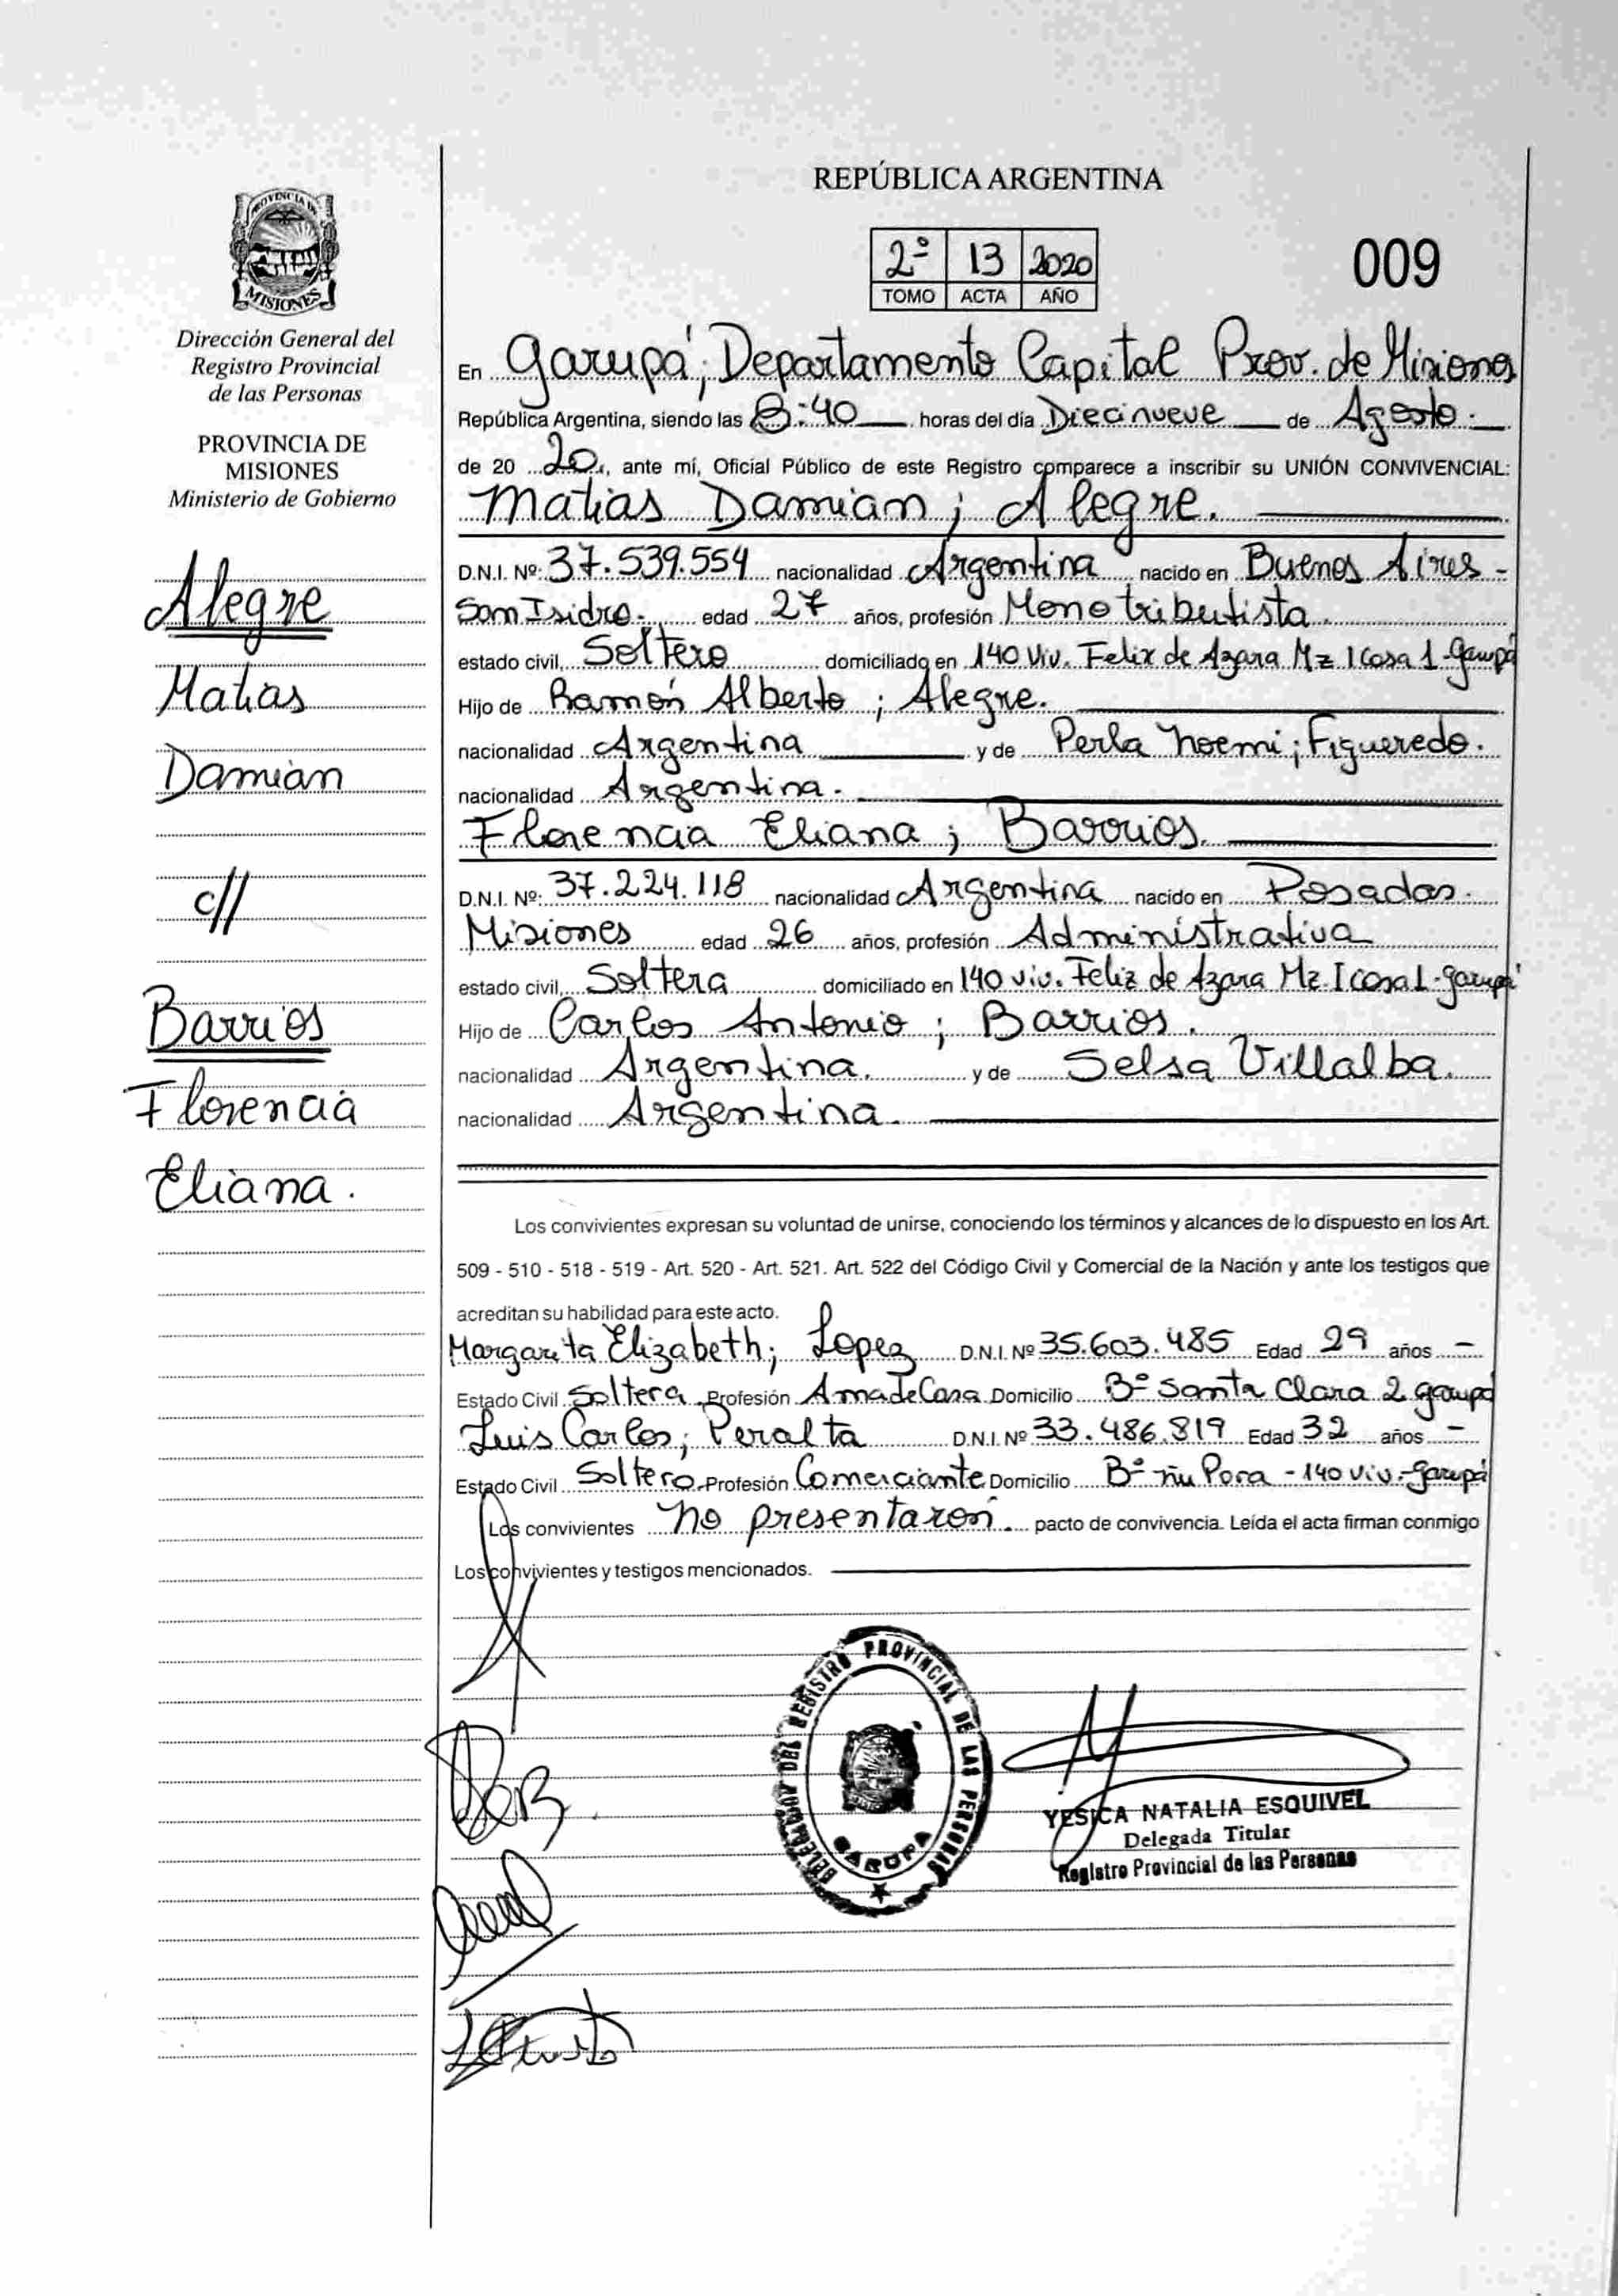 PROVINCIA DE
MISIONES
Dirección General del
Registro Provincial
de las Personas
PROVINCIA DE
MISIONES
Ministerio de Gobierno
Alegre
Matias
Damián
c//
Barrios
Florencia
Eliana.
REPÚBLICA ARGENTINA
2º 13 2020
TOMO ACTA AÑO
009
En Garupá; Departamento Capital Prov. de Misiones
República Argentina, siendo las 8:40 horas del día Diecinueve de Agosto.
de 20 20, ante mí, Oficial Público de este Registro comparece a inscribir su UNIÓN CONVIVENCIAL:
Matias Damián; Alegre.
D.N.I. Nº: 37.539.554 nacionalidad Argentina nacido en Buenos Aires -
San Isidro. edad 27 años, profesión Monotributista.
estado civil, Soltero domiciliado en 140 Viv. Felix de Azara Mz I Casa 1 - Garupá
Hijo de Ramón Alberto; Alegre.
nacionalidad Argentina y de Perla Noemi; Figueredo.
nacionalidad Argentina.
Florencia Eliana; Barrios.
D.N.I. Nº: 37.224.118 nacionalidad Argentina nacido en Posadas.
Misiones edad 26 años, profesión Administrativa
estado civil, Soltera domiciliado en 140 viv. Feliz de Azara Mz. I Casa 1 - Garupá
Hijo de Carlos Antonio; Barrios.
nacionalidad Argentina. y de Selsa Villalba.
nacionalidad Argentina.
Los convivientes expresan su voluntad de unirse, conociendo los términos y alcances de lo dispuesto en los Art.
509 - 510 - 518 - 519 - Art. 520 - Art. 521. Art. 522 del Código Civil y Comercial de la Nación y ante los testigos que
acreditan su habilidad para este acto.
Margarita Elizabeth; Lopez D.N.I. Nº 35.603.485 Edad 29 años -
Estado Civil Soltera Profesión Ama de Casa Domicilio Bº Santa Clara 2 Garupá
Luis Carlos; Peralta D.N.I. Nº 33.486.819 Edad 32 años -
Estado Civil Soltero Profesión Comerciante Domicilio Bº Ñu Pora - 140 viv. - Garupá
Los convivientes no presentaron. pacto de convivencia. Leída el acta firman conmigo
Los convivientes y testigos mencionados.
DELEGACION DEL REGISTRO PROVINCIAL DE LAS PERSONAS
GARUPA
YESICA NATALIA ESQUIVEL
Delegada Titular
Registro Provincial de las Personas